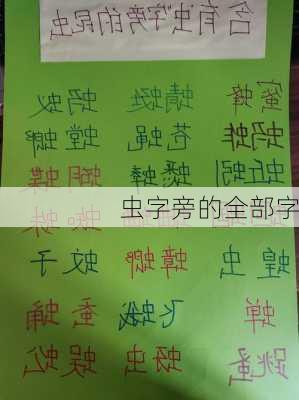 含有虫字旁的昆虫
蜜蜂 蜻蜓 蚂蚁
蚂蚱 苍蝇 螳螂
蚯蚓 蟋蟀 蝴蝶
虫字旁的全部字
蝗虫 蟑螂 蚊子
蝉 飞蛾 蚕蛹
跳蚤 蚜虫 蜈蚣